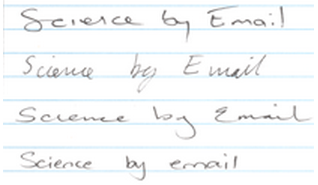 Science by Email
Science by Email
Science by Email
Science by email